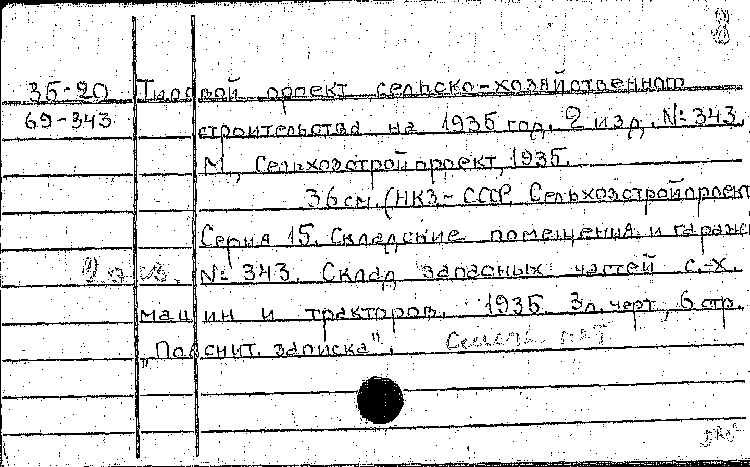 35-20 Типовой проект сельско-хозяйственного
69-343 строительства на 1935 год. 2 изд. №343.
М., Сельхозстройпроект, 1935.
36 см. (НКЗ-СССР Сельхозстройпроект
Серия 15. Складские помещения и гаражи
№ 343. Склад запасных частей с.-х.
машин и тракторов. 1935. 3 л. черт., 6 стр.
"Пояснит. записка".